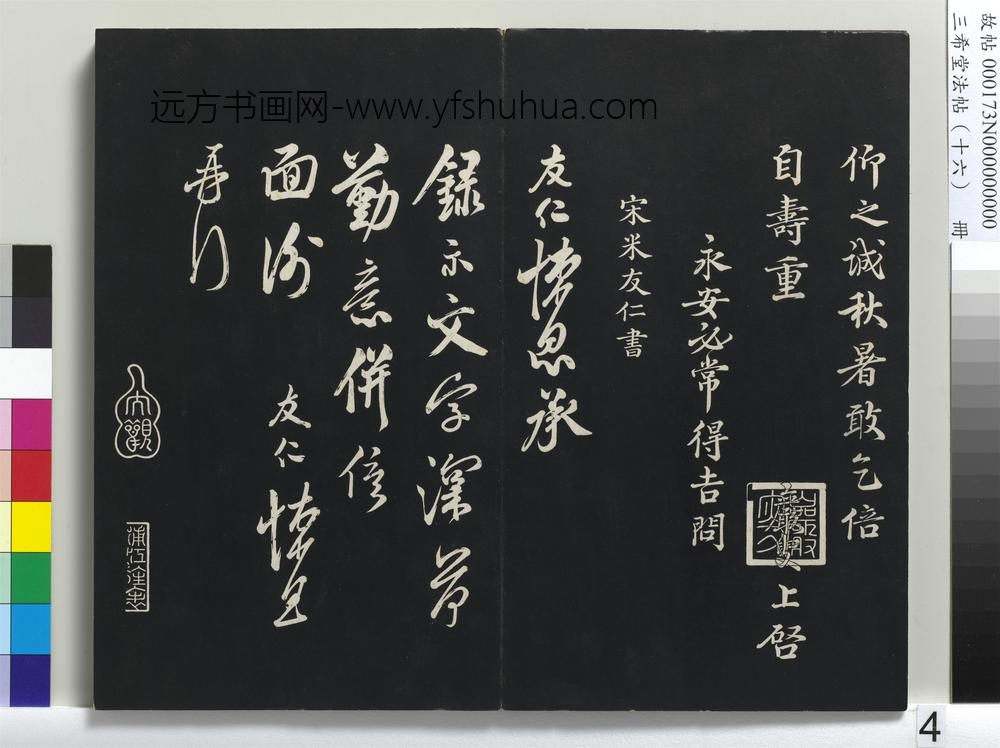 远方书画网-www.yfshuhua.com
故帖 000173N000000000
三希堂法帖(十六) 冊
仰之誠秋暑敢乞倍
自壽重 上啓
永安必常得吉問
宋米友仁書
友仁悚息承
錄示文字深荷
勤意併俟
面謝 友仁悚息
再
4